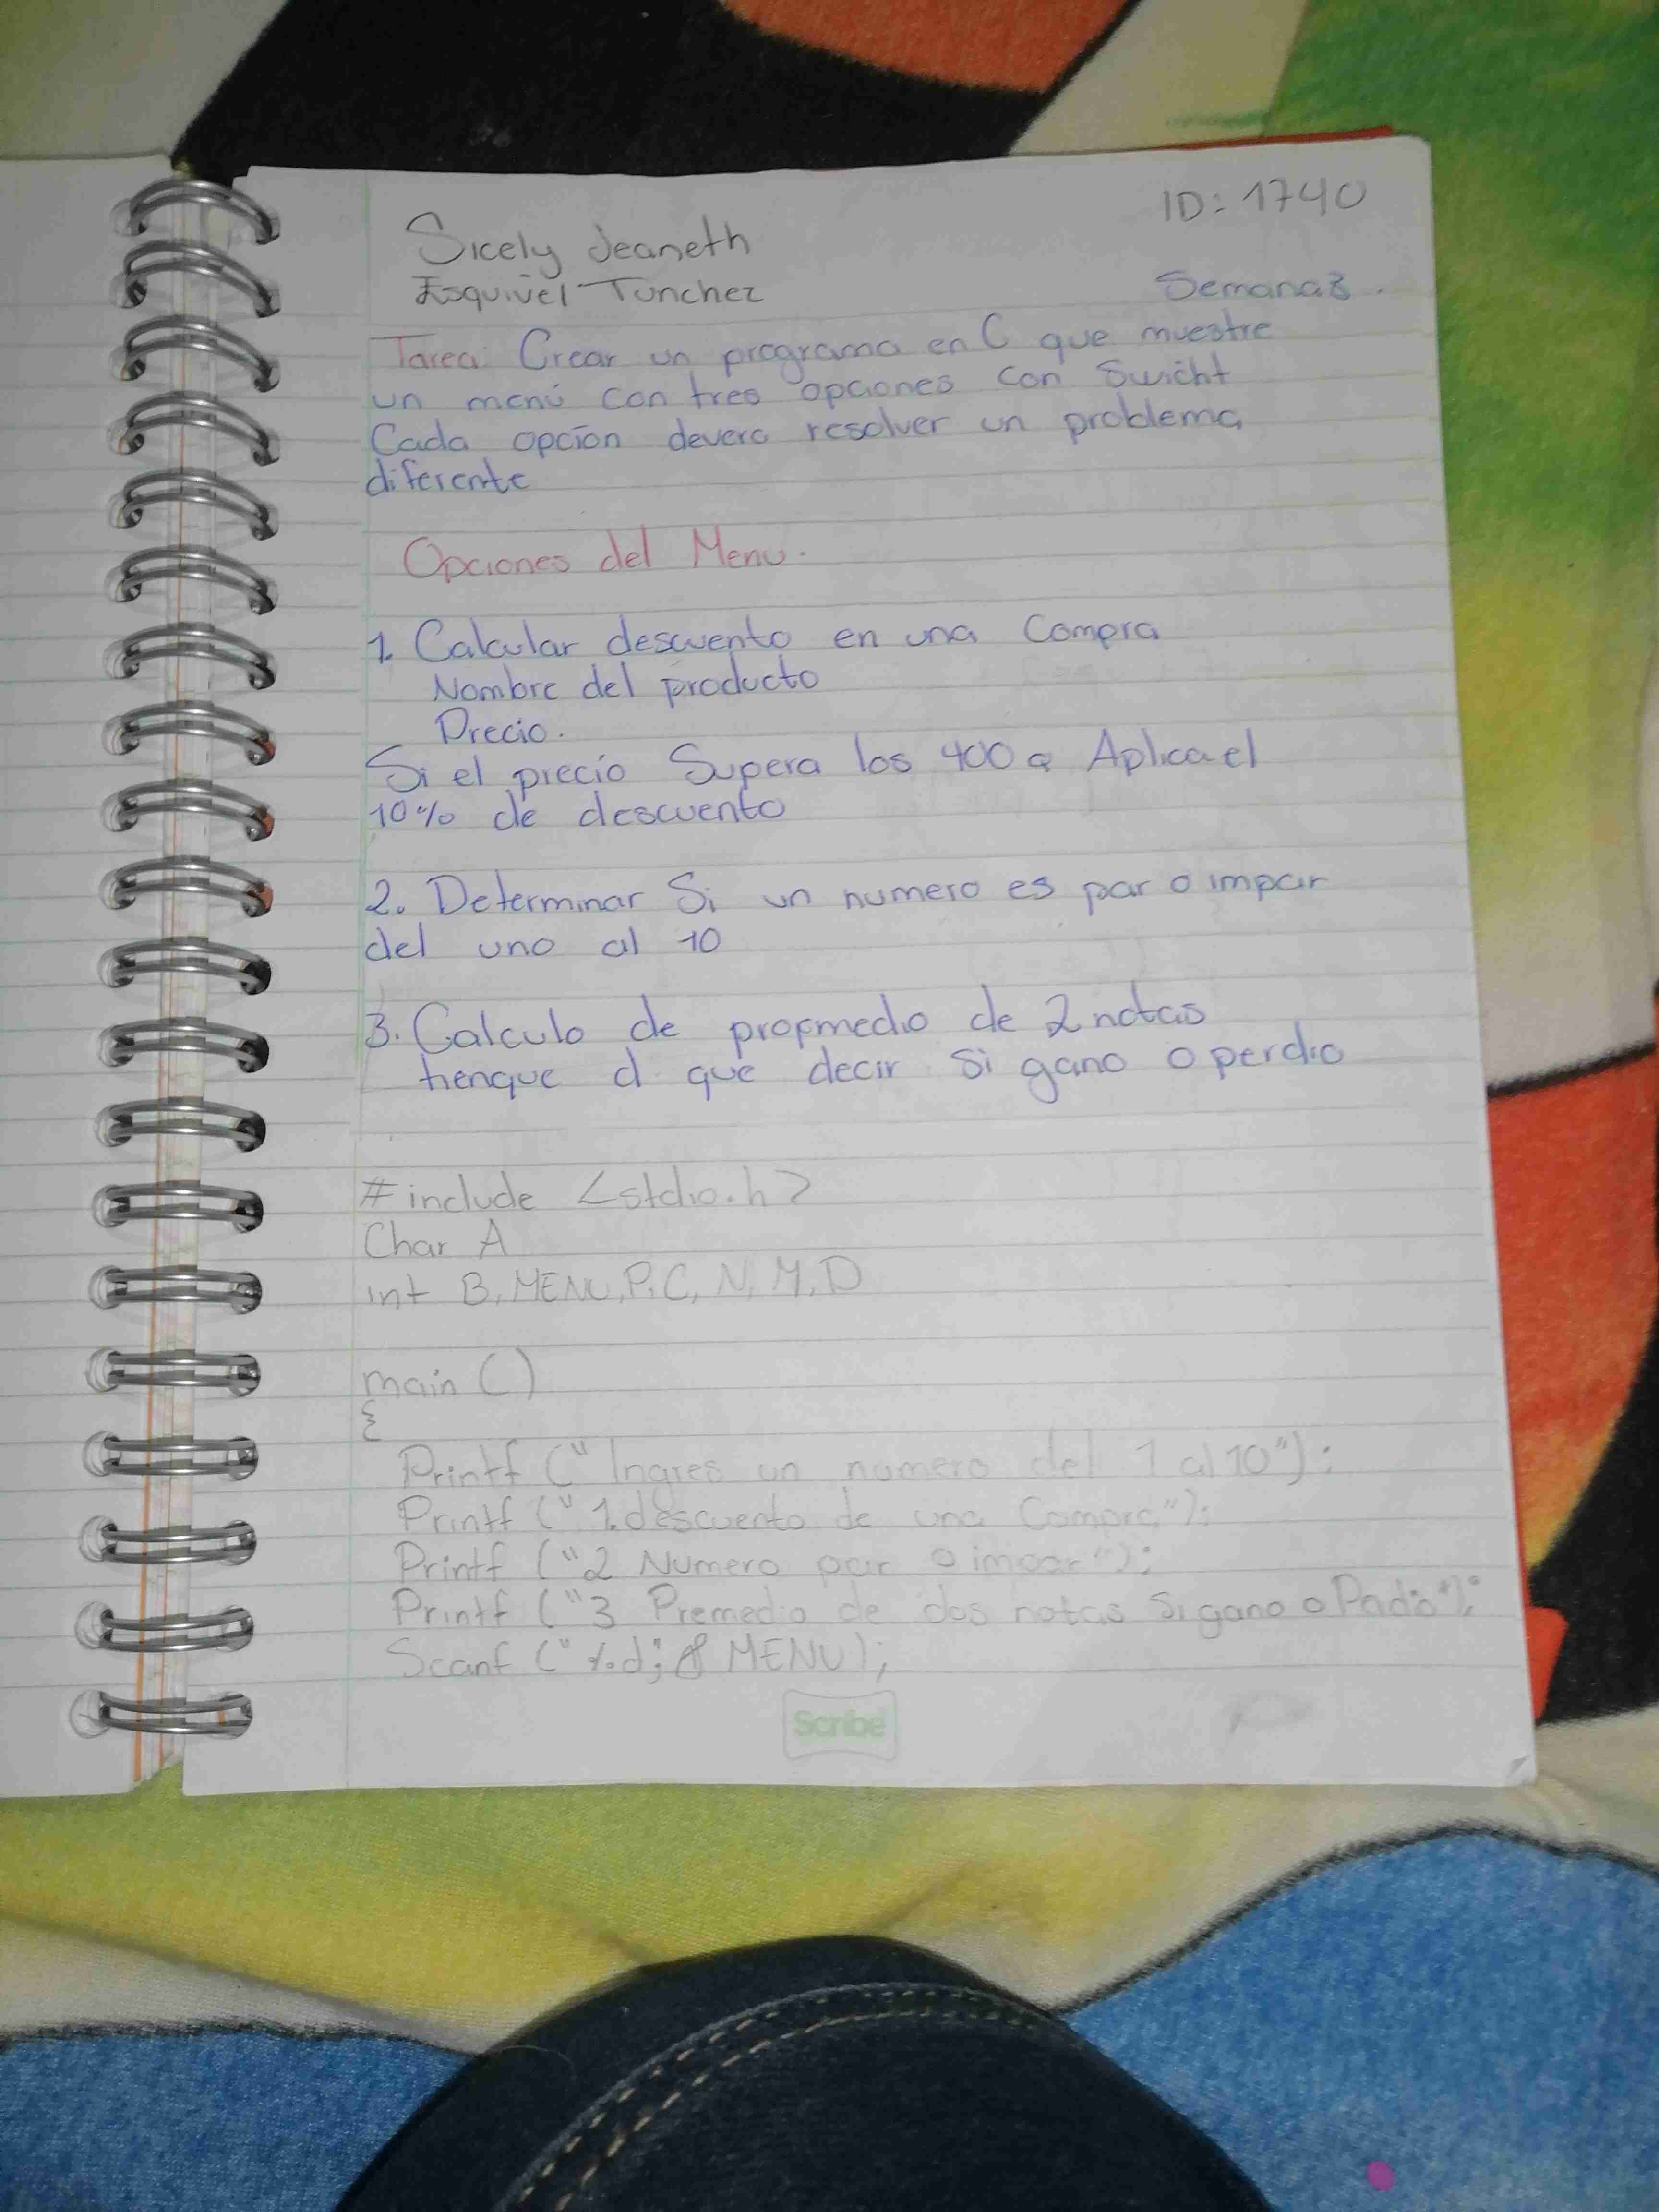 ID: 1740
Sicely Jeaneth
Esquivel Tunchez
Semana 3.
Tarea: Crear un programa en C que muestre
un menú con tres opciones con Swicht
Cada opción devera resolver un problema
diferente
Opciones del Menu.
1. Calcular descuento en una Compra
Nombre del producto
Precio.
Si el precio Supera los 400 Q Aplica el
10% de descuento
2. Determinar Si un numero es par o impar
del uno al 10
3. Calculo de propmedio de 2 notas
tienque d que decir Si gano o perdio
#include <stdio.h>
Char A
int B, MENU, P, C, N, M, D
main ()
{
Printf ("Ingres un numero del 1 al 10");
Printf ("1. descuento de una Compra");
Printf ("2 Numero par o impar");
Printf ("3 Premedio de dos notas Si gano o Padio");
Scanf ("%d", & MENU);
Scribe